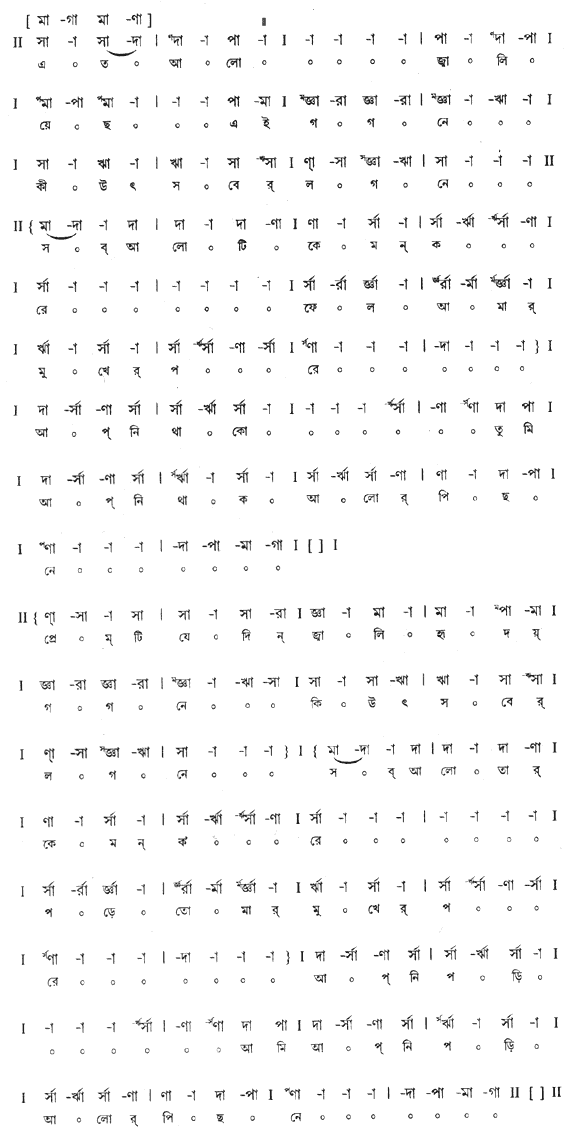 [ মা -গা মা -ণা ]
II সা -া সা -দা | ᵖদা -া পা -া I -া -া -া -া | পা -া ᵖদা -পা I
এ ০ ত ০ আ ০ লো ০ ০ ০ ০ ০ জ্বা ০ লি ০
I ᵖমা -পা ᵖমা -া | -া -া পা -মা I ᵐজ্ঞা -রা জ্ঞা -রা | ᵐজ্ঞা -া -ঋা -া I
য়ে ০ ছ ০ ০ ০ এ ই গ ০ গ ০ নে ০ ০ ০
I সা -া ঋা -া | ঋা -া সা ᵃসা I ণ্‌া -সা ᵃজ্ঞা -ঋা | সা -া -া -া II
কী ০ উ ৎ স ০ বে র্ ল ০ গ ০ নে ০ ০ ০
II { মা -দা -া দা | দা -া দা -ণা I ণা -া র্সা -া | র্সা -র্ঋা র্সা -ণা I
স ০ ব্ আ লো ০ টি ০ কে ০ ম ন্ ক ০ ০ ০
I র্সা -া -া -া | -া -া -া -া I র্সা -র্রা র্জ্ঞা -া | র্রা -র্মা র্জ্ঞা -া I
রে ০ ০ ০ ০ ০ ০ ০ ফে ০ ল ০ আ ০ মা র্
I র্ঋা -া র্সা -া | র্সা র্সা -ণা -র্সা I ণা -া -া -া | -দা -া -া -া } I
মু ০ খে র্ প ০ ০ ০ রে ০ ০ ০ ০ ০ ০ ০
I দা -র্সা -ণা র্সা | র্সা -র্ঋা র্সা -া I -া -া -া র্সা | -ণা ণা দা পা I
আ ০ প্ নি থা ০ কো ০ ০ ০ ০ ০ ০ ০ তু মি
I দা -র্সা -ণা র্সা | র্ঋা -া র্সা -া I র্সা -র্ঋা র্সা -ণা | ণা -া দা -পা I
আ ০ প্ নি থা ০ ক ০ আ ০ লো র্ পি ০ ছ ০
I ণা -া -া -া | -দা -পা -মা -গা I [ ] I
নে ০ ০ ০ ০ ০ ০ ০
II { ণ্‌া -সা -া সা | সা -া সা -রা I জ্ঞা -া মা -া | মা -া পা -মা I
প্রে ০ ম্ টি যে ০ দি ন্ জ্বা ০ লি ০ হৃ ০ দ য়্
I জ্ঞা -রা জ্ঞা -রা | ᵐজ্ঞা -া -ঋা -সা I সা -া সা -ঋা | ঋা -া সা সা I
গ ০ গ ০ নে ০ ০ ০ কি ০ উ ৎ স ০ বে র্
I ণ্‌া -সা জ্ঞা -ঋা | সা -া -া -া } I { মা -দা -া দা | দা -া দা -ণা I
ল ০ গ ০ নে ০ ০ ০ স ০ ব্ আ লো ০ তা র্
I ণা -া র্সা -া | র্সা -র্ঋা র্সা -ণা I র্সা -া -া -া | -া -া -া -া I
কে ০ ম ন্ ক ০ ০ ০ রে ০ ০ ০ ০ ০ ০ ০
I র্সা -র্রা র্জ্ঞা -া | র্রা -র্মা র্জ্ঞা -া I র্ঋা -া র্সা -া | র্সা র্সা -ণা -র্সা I
প ০ ড়ে ০ তো ০ মা র্ মু ০ খে র্ প ০ ০ ০
I ণা -া -া -া | -দা -া -া -া } I দা -র্সা -ণা র্সা | র্সা -র্ঋা র্সা -া I
রে ০ ০ ০ ০ ০ ০ ০ আ ০ প্ নি প ০ ড়ি ০
I -া -া -া র্সা | -ণা ণা দা পা I দা -র্সা -ণা র্সা | র্ঋা -া র্সা -া I
০ ০ ০ ০ ০ ০ আ মি আ ০ প্ নি প ০ ড়ি ০
I র্সা -র্ঋা র্সা -ণা | ণা -া দা -পা I ণা -া -া -া | -দা -পা -মা -গা II [ ] II
আ ০ লো র্ পি ০ ছ ০ নে ০ ০ ০ ০ ০ ০ ০